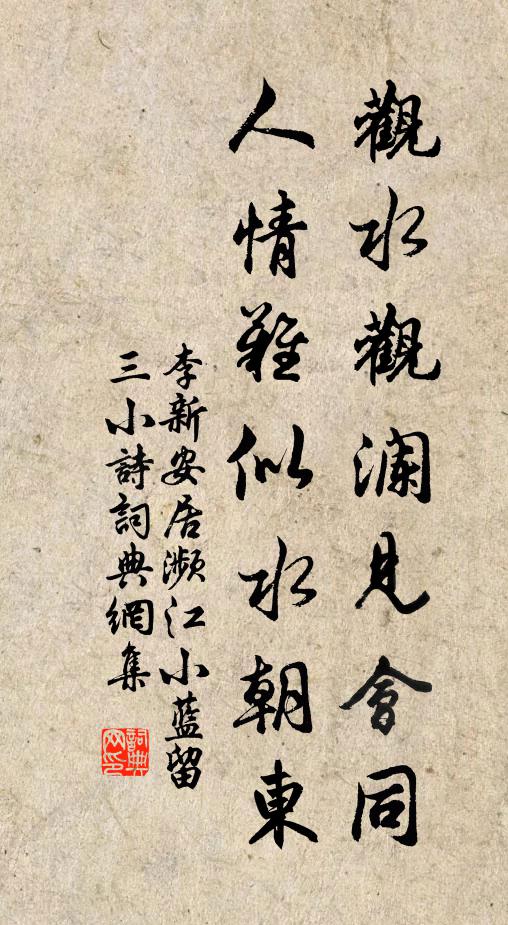 觀水觀瀾見會同
人情難似水朝東
李新安居瀕江小藍留
三小詩詞典網集
詞典
网印